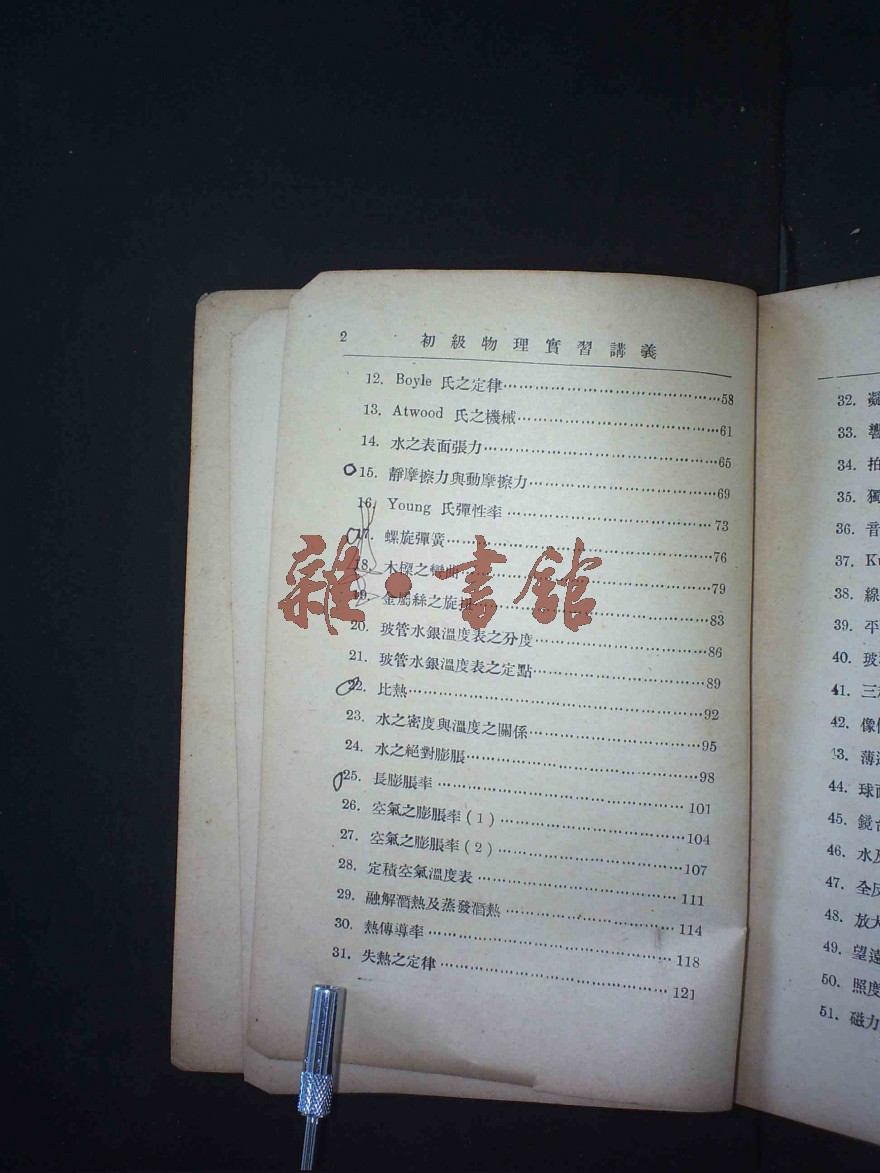 2 初級物理實習講義
12. Boyle 氏之定律……58
13. Atwood 氏之機械……61
14. 水之表面張力……65
15. 靜摩擦力與動摩擦力……69
16. Young 氏彈性率……73
17. 螺旋彈簧……76
18. 木樑之彎曲……79
19. 金屬絲之旋扭……83
20. 玻管水銀溫度表之分度……86
21. 玻管水銀溫度表之定點……89
22. 比熱……92
23. 水之密度與溫度之關係……95
24. 水之絕對膨脹……98
25. 長膨脹率……101
26. 空氣之膨脹率(1)……104
27. 空氣之膨脹率(2)……107
28. 定積空氣溫度表……111
29. 融解潛熱及蒸發潛熱……114
30. 熱傳導率……118
31. 失熱之定律……121
雜·書館
32. 凝
33. 響
34. 拍
35. 獨
36. 音
37. Ku
38. 線
39. 平
40. 玻
41. 三
42. 像
43. 薄
44. 球面
45. 鏡
46. 水及
47. 全反
48. 放大
49. 望遠
50. 照度
51. 磁力